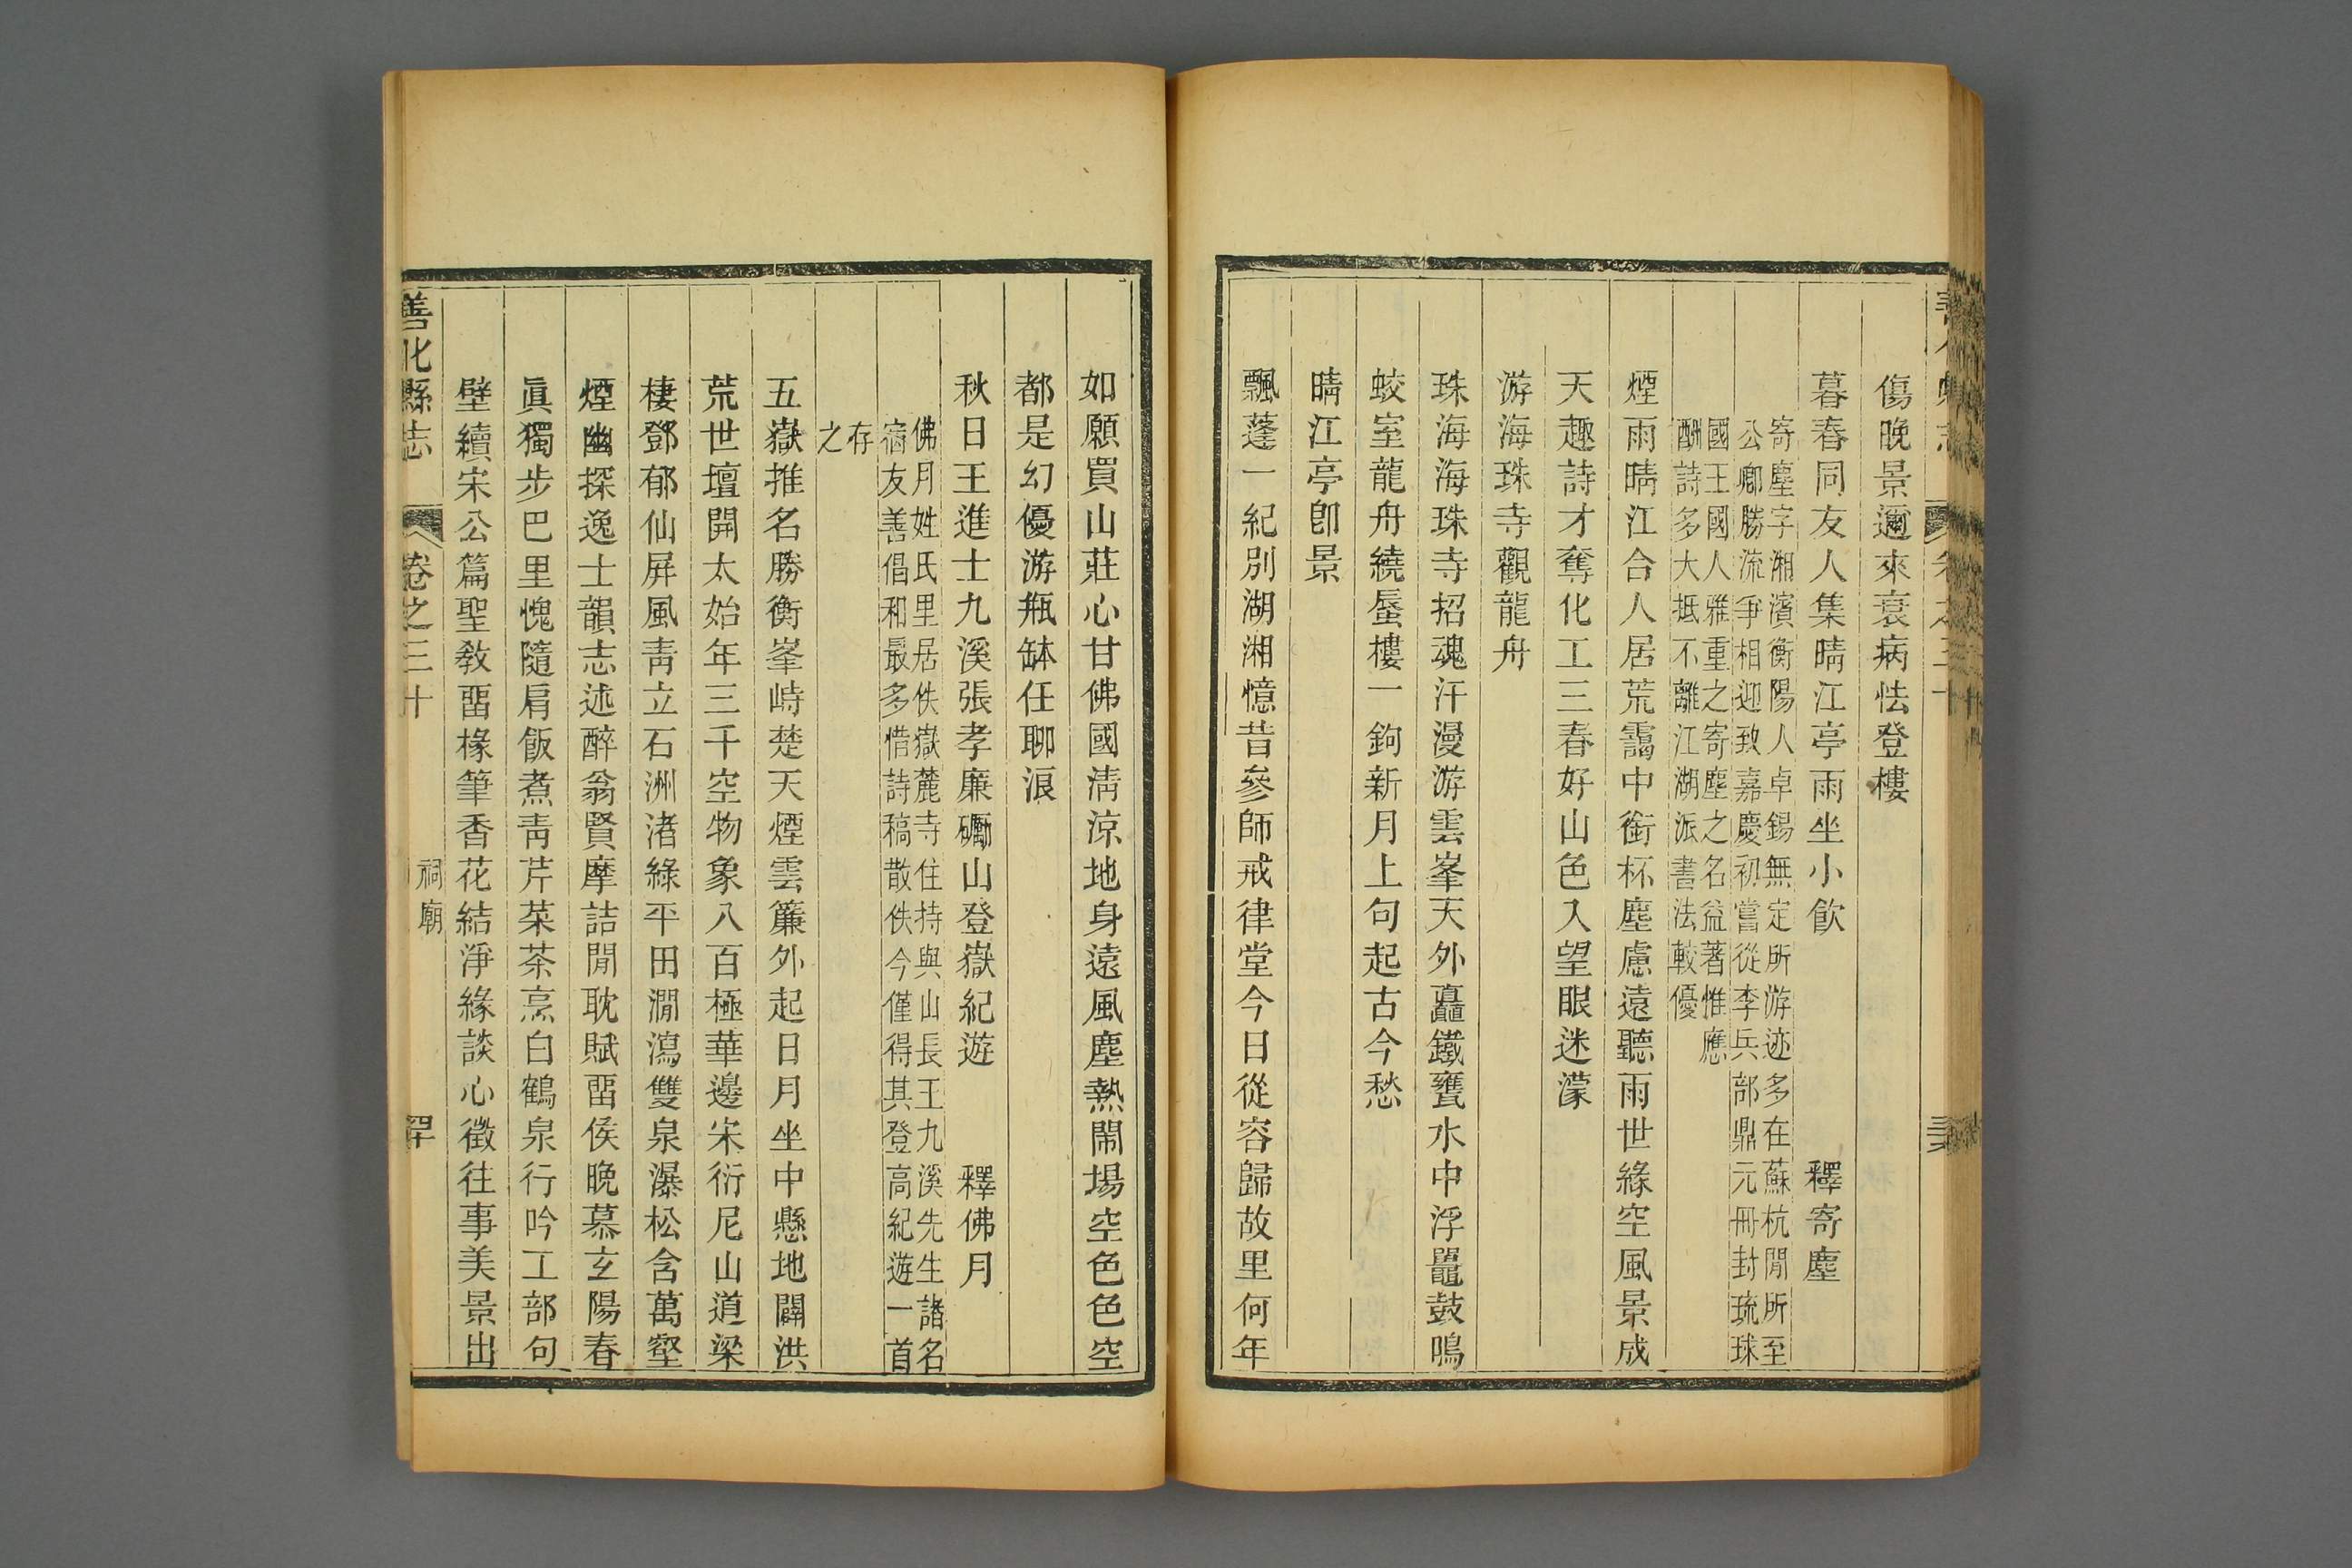 傷晚景邇來衰病怯登樓
暮春同友人集晴江亭雨坐小飲　釋寄塵
寄塵字湘濱衡陽人卓錫無定所游迹多在蘇杭閒所至
公卿勝流爭相迎致嘉慶初嘗從李兵部鼎元冊封琉球
國王國人雅重之寄塵之名益著惟應
酬詩多大抵不離江湖派書法較優
煙雨晴江合人居荒靄中銜杯塵慮遠聽雨世緣空風景成
天趣詩才奪化工三春好山色入望眼迷濛
游海珠寺觀龍舟
珠海海珠寺招魂汗漫游雲峯天外矗鐵甕水中浮鼉鼓鳴
蛟室龍舟繞蜃樓一鉤新月上句起古今愁
晴江亭卽景
飄蓬一紀別湖湘憶昔參師戒律堂今日從容歸故里何年
如願買山莊心甘佛國淸涼地身遠風塵熱鬧場空色色空
都是幻優游甁缽任聊浪
秋日王進士九溪張孝廉礪山登嶽紀遊　釋佛月
佛月姓氏里居佚嶽麓寺住持與山長王九溪先生諸名
宿友善倡和最多惜詩稿散佚今僅得其登高紀遊一首
存
之
五嶽推名勝衡峯峙楚天煙雲簾外起日月坐中懸地闢洪
荒世壇開太始年三千空物象八百極華邊宋衍尼山道梁
棲鄧郁仙屛風靑立石洲渚綠平田澗瀉雙泉瀑松含萬壑
煙幽探逸士韻志述醉翁賢摩詰閒耽賦畱侯晚慕玄陽春
眞獨步巴里愧隨肩飯煮靑芹菜茶烹白鶴泉行吟工部句
壁續宋公篇聖敎畱椽筆香花結淨緣談心徵往事美景出
善化縣志　卷之三十　祠廟　四十